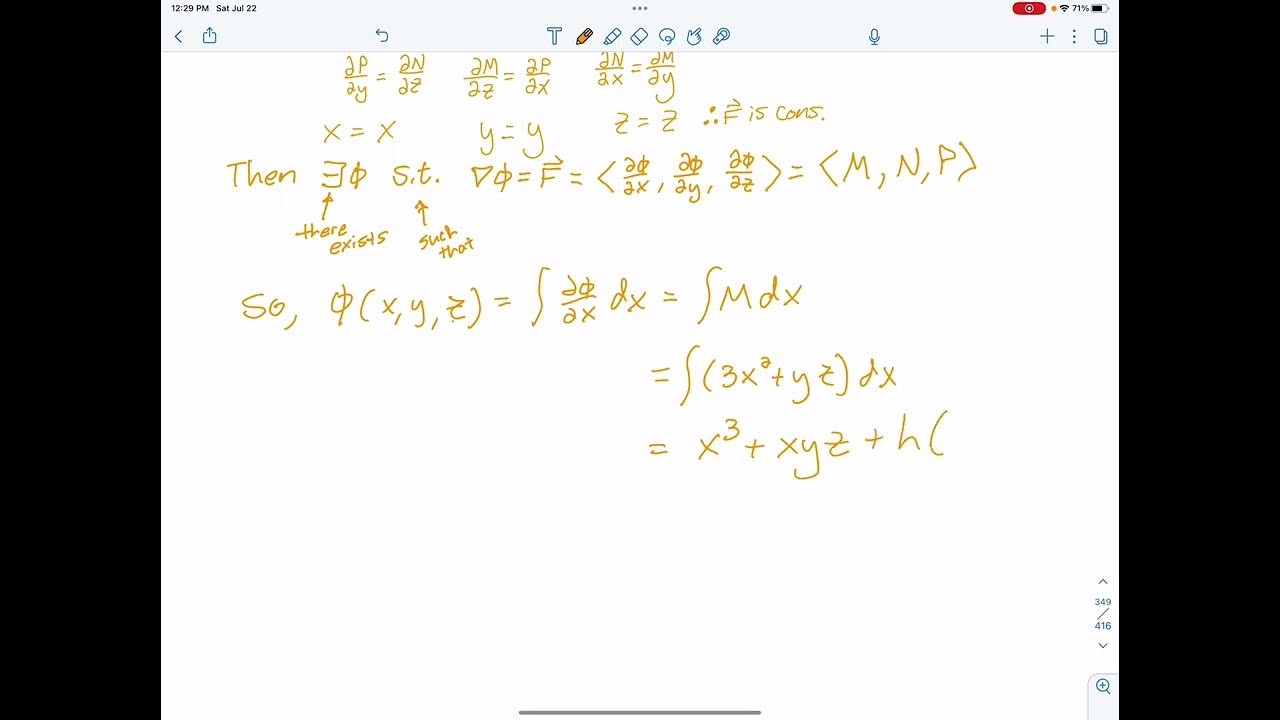 12:29 PM Sat Jul 22 71%
∂P/∂y = ∂N/∂z ∂M/∂z = ∂P/∂x ∂N/∂x = ∂M/∂y
x = x y = y z = z ∴ F⃗ is cons.
Then ∃ϕ s.t. ∇ϕ = F⃗ = ⟨∂ϕ/∂x, ∂ϕ/∂y, ∂ϕ/∂z⟩ = ⟨M, N, P⟩
there exists
such that
So, ϕ(x, y, z) = ∫ ∂ϕ/∂x dx = ∫ M dx
= ∫ (3x² + yz) dx
= x³ + xyz + h(
349
416